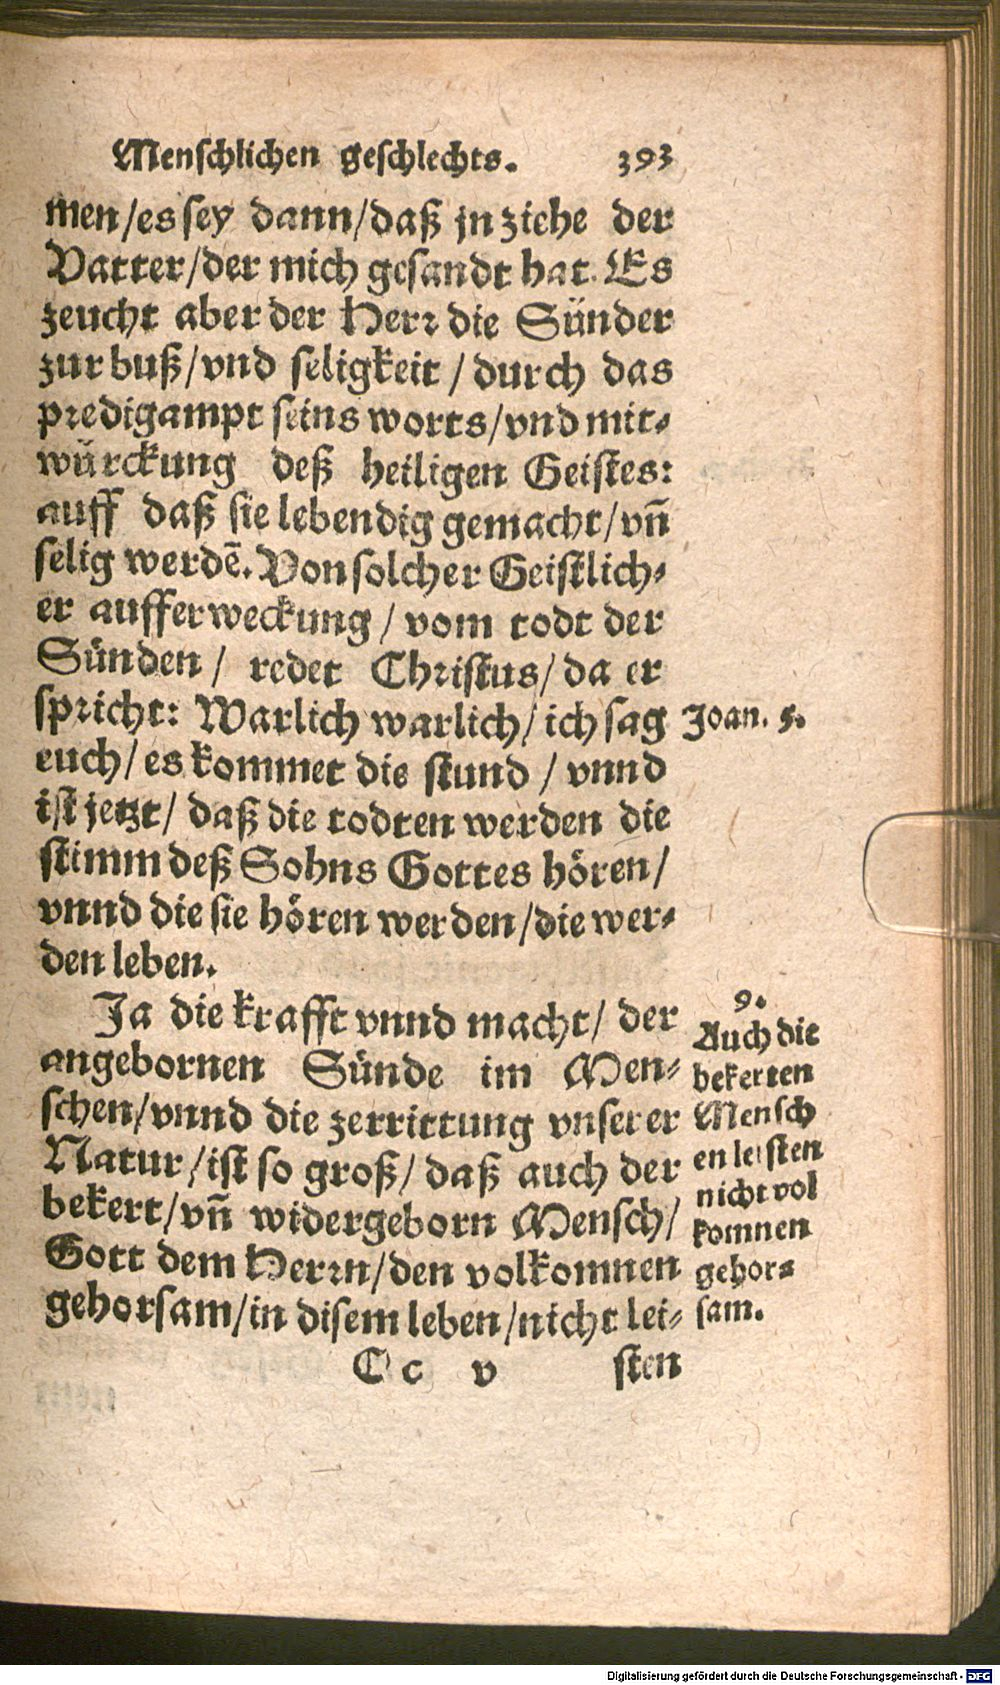 Menschlichen geschlechts. 393
men/es sey dann/daß jn ziehe der
Vatter/der mich gesandt hat. Es
zeucht aber der Herr die Sünder
zur buß/vnd seligkeit/durch das
predigampt seins worts/vnd mit-
würckung deß heiligen Geistes:
auff daß sie lebendig gemacht/vn̄
selig werdē. Von solcher Geistlich-
er aufferweckung/vom todt der
Sünden/ redet Christus/da er
spricht: Warlich warlich/ich sag
euch/es kommet die stund/vnnd
ist jetzt/ daß die todten werden die
stimm deß Sohns Gottes hören/
vnnd die sie hören werden/die wer-
den leben.
Joan. 5.
Ja die krafft vnnd macht/ der
angebornen Sünde im Men-
schen/vnnd die zerrittung vnserer
Natur/ist so groß/daß auch der
bekert/vn̄ widergeborn Mensch/
Gott dem Herrn/den volkomnen
gehorsam/in disem leben/nicht lei-
9.
Auch die
bekerten
Mensch
en leisten
nicht vol
komnen
gehor-
sam.
Cc v sten
Digitalisierung gefördert durch die Deutsche Forschungsgemeinschaft - DFG